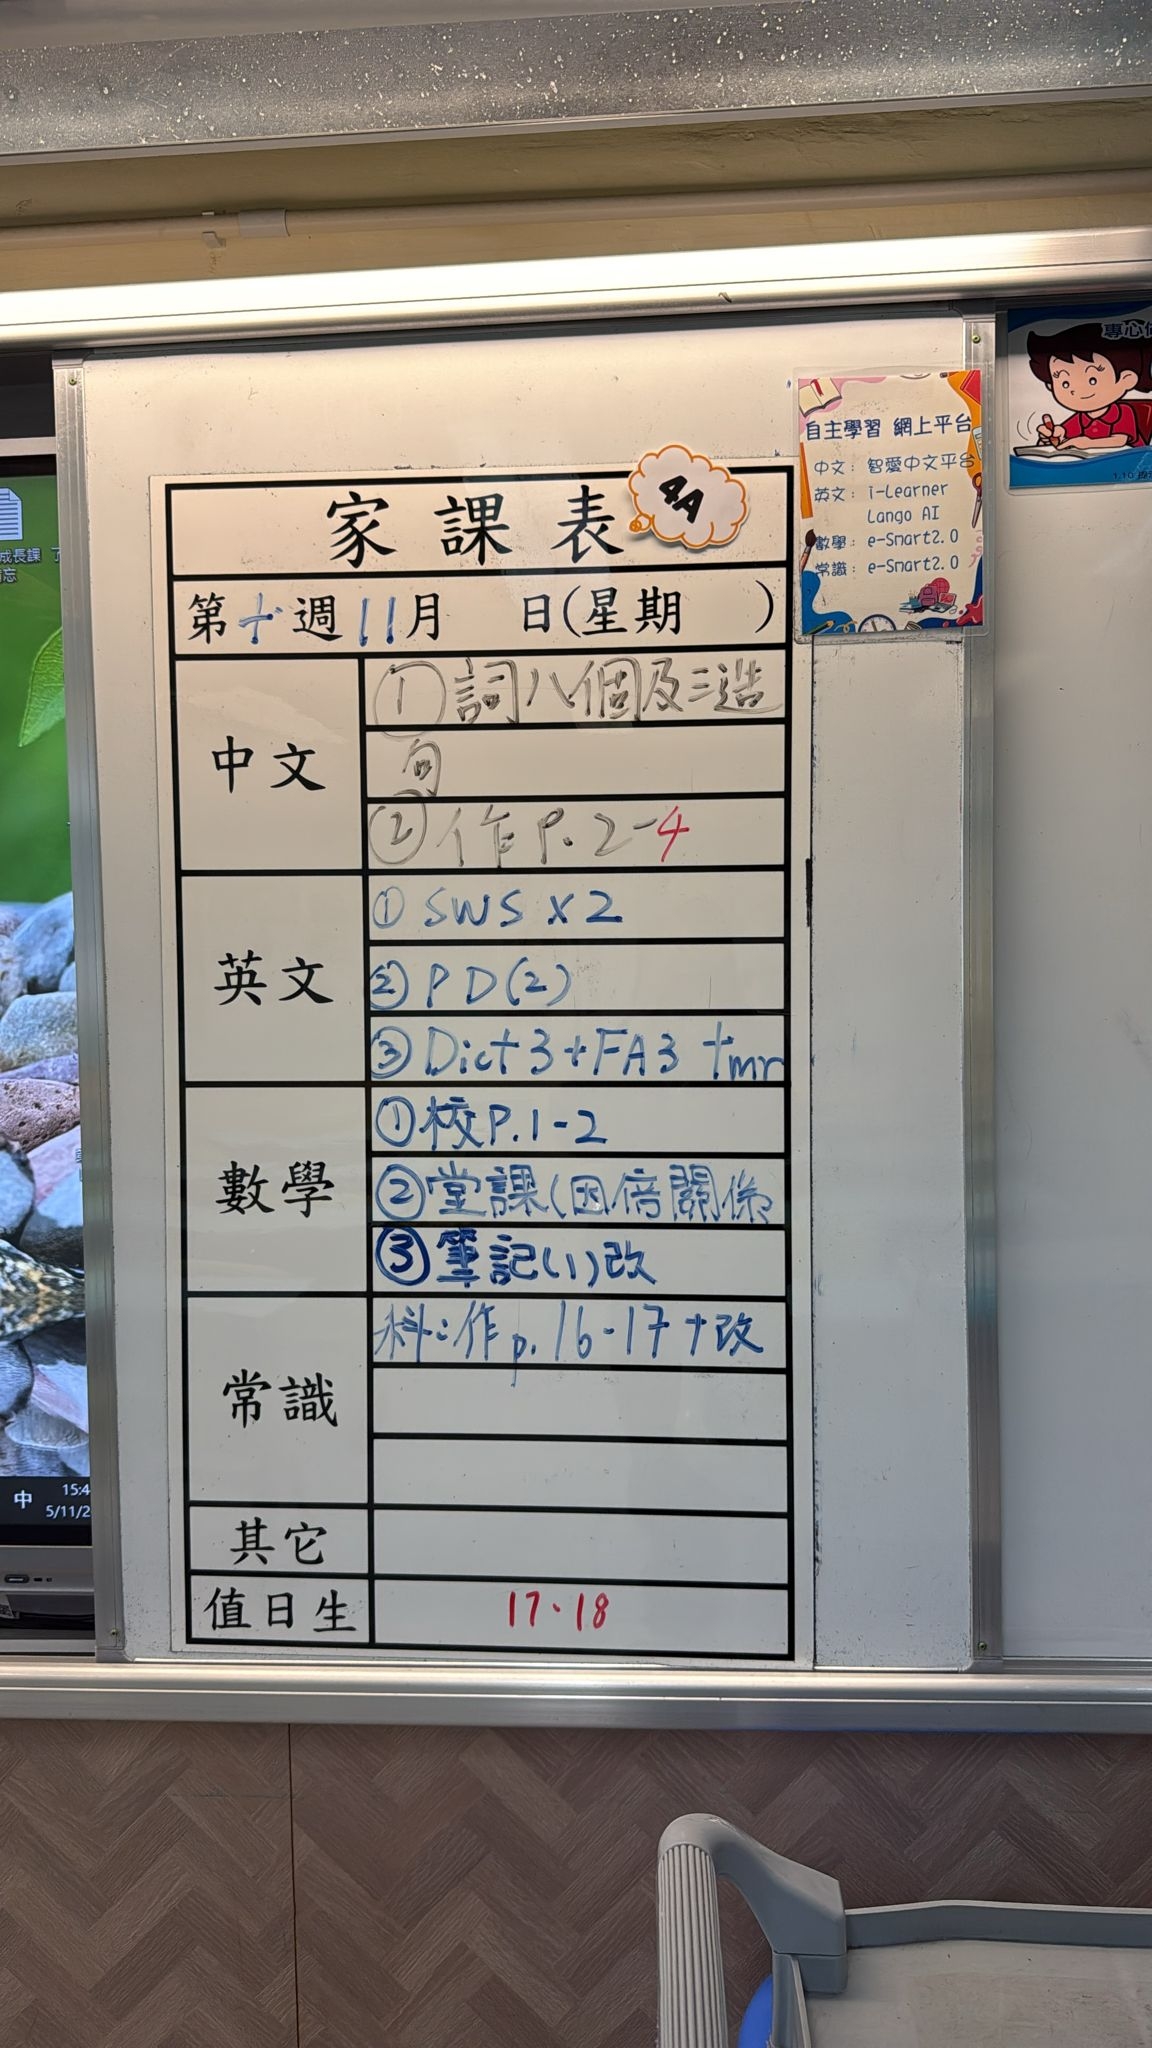 專心
自主學習 網上平台
中文：智愛中文平台
英文：i-Learner
Lango AI
數學：e-Smart2.0
常識：e-Smart2.0
成長課
忘
家課表
4A
第十週11月 日(星期 )
中文
①詞八個及三造
句
②作P.2-4
英文
①SWS x2
②PD(2)
③Dict 3+FA3 tmr
數學
①校P.1-2
②堂課(因倍關係
③筆記(1)改
常識
科:作p.16-17+改
其它
值日生
17、18
中
15:4
5/11/2